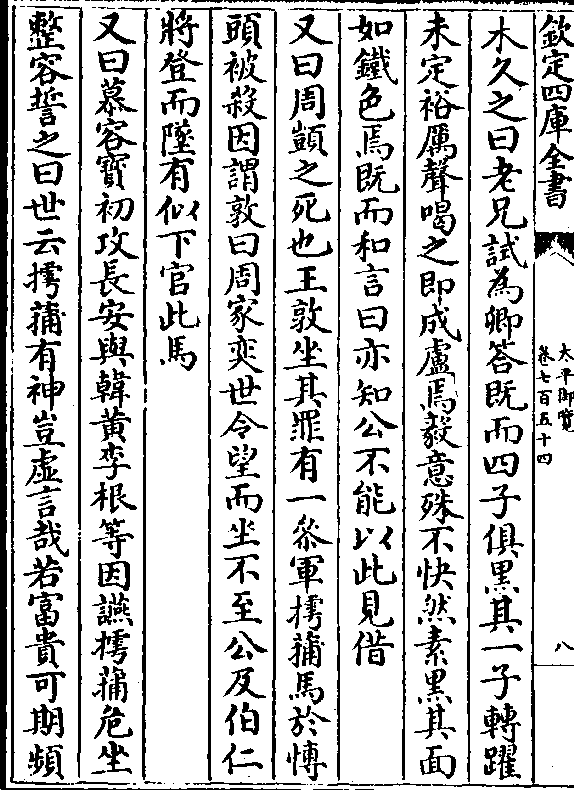 欽定四庫全書
太平御覽
卷七百五十四
八
木久之曰老兄試為卿答既而四子俱黑其一子轉躍
未定裕厲聲喝之即成盧焉毅意殊不快然素黑其面
如鐵色焉既而和言曰亦知公不能以此見借
又曰周顗之死也王敦坐其罪有一參軍摴蒱馬於博
頭被殺因謂敦曰周家奕世令望而坐不至公及伯仁
將登而墜有似下官此馬
又曰慕容寶初攻長安與韓黄李根等因讌摴蒱危坐
整容誓之曰世云摴蒱有神豈虛言哉若富貴可期頻